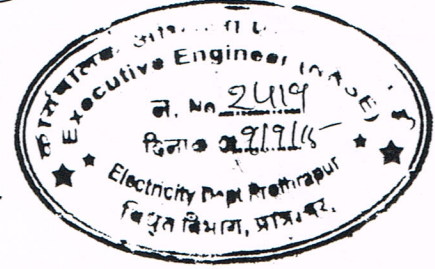 कार्यपालक
Executive Engineer (NRSE)
नं. No 2419
दिनांक 09/9/15
Electricity Dept Prothrapur
विद्युत विभाग,